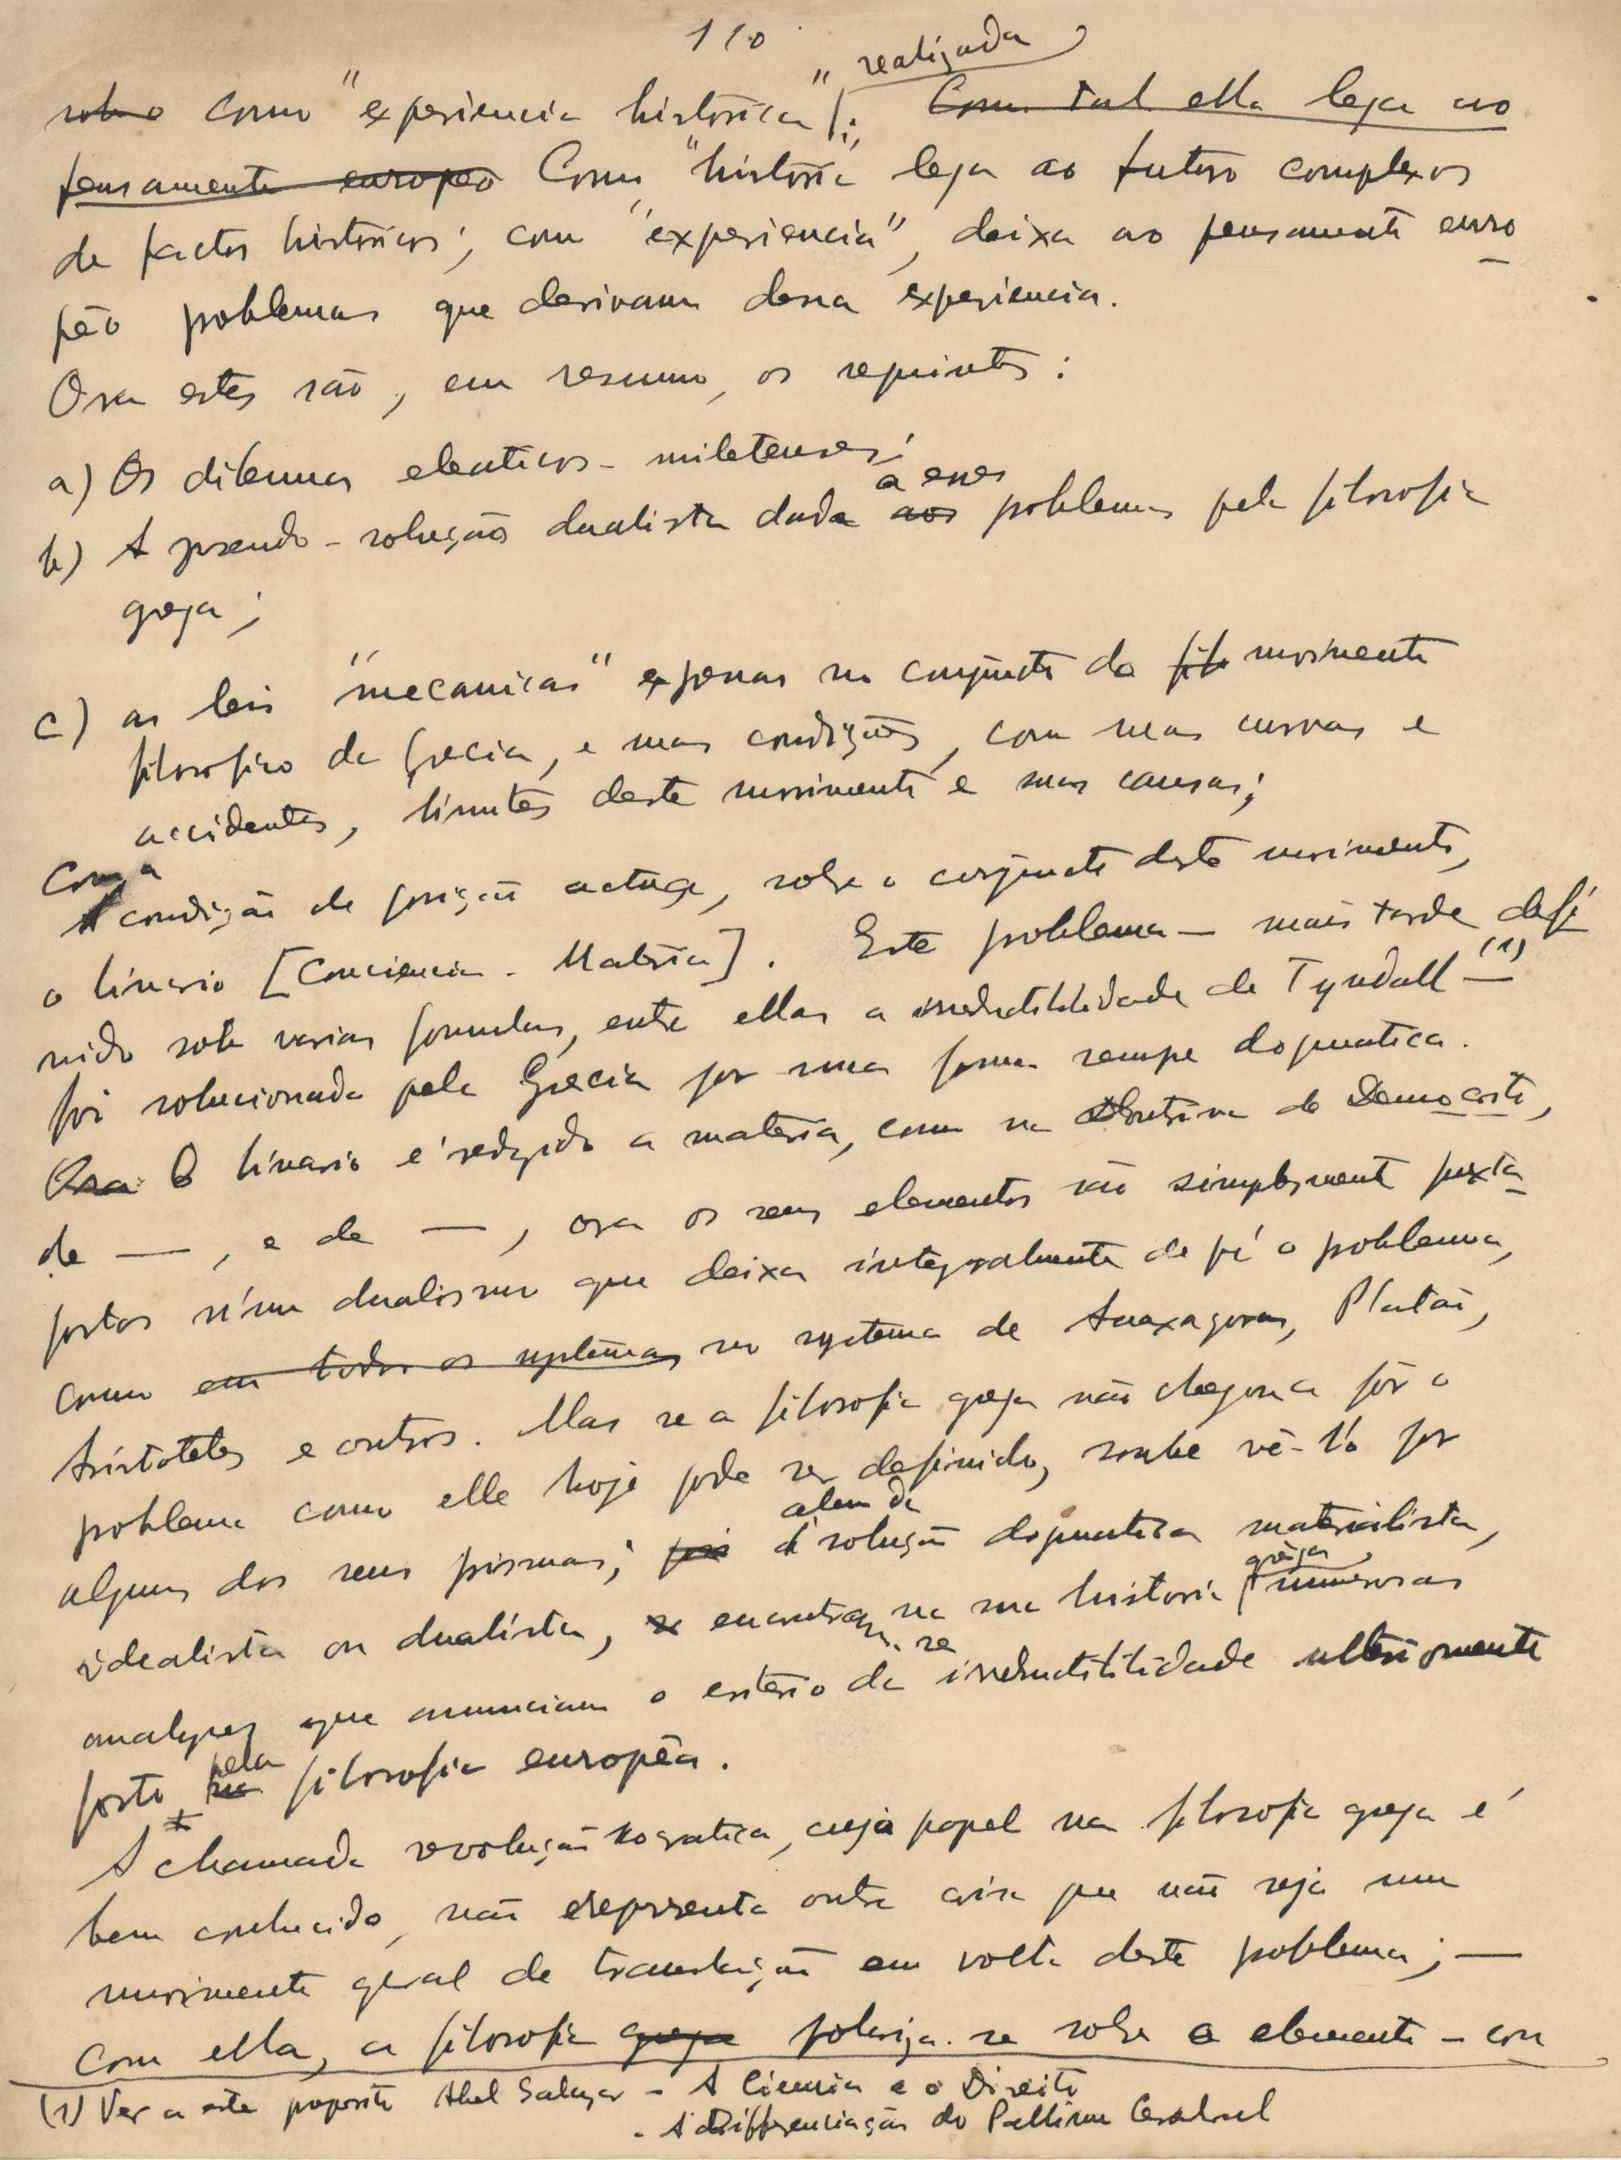 110
como "experiencia historica" realizada; Com tal ella lega ao
pensamento europeo Como "historia" lega ao futuro complexos
de factos historicos; como "experiencia", deixa ao pensamento euro
pêo problemas que derivam dessa experiencia.
Ora estes são, em resumo, os seguintes:
a) Os dilemas eleaticos-miletenses;
b) A pseudo-solução dualista dada aos a esses problemas pela filosofia
grega;
c) as leis "mecanicas" expressas no conjunto do filo movimento
filosofico da Grecia, e suas condições, com suas curvas e
accidentes, limites deste movimento e suas causas;
Como a condição de posição actua, sobre o conjunto deste movimento,
o binario [Conciencia - Materia]. Este problema — mais tarde defi
nido sob varias formulas, entre ellas a irreductibilidade de Tyndall — (1)
foi solucionado pela Grecia por uma forma sempre dogmatica.
Ora O binario é redusido a materia, como na doutrina de Democrito,
de —, e de —, ora os seus elementos são simplesmente justa
postos n'um dualismo que deixa integralmente de pé o problema,
como em todos os systemas no systema de Anaxagoras, Platão,
Aristoteles e outros. Mas se a filosofia grega não chegou a pôr o
problema como elle hoje pode ser definido, soube vê-l'o por
alguns dos seus prismas; alem da solução dogmatica materialista,
idealista ou dualista, encontram-se na sua historia grega numerosas
analyses que anunciam o criterio da irreductibilidade ulteriormente
posto na pela filosofia europêa.
A chamada revolução socratica, cujo papel na filosofia grega é
bem conhecido, não representa outra coisa que não seja um
movimento geral de translação em volta deste problema; —
Com ella, a filosofia grega polariza-se sobre o elemento - con
(1) Ver a este proposito Abel Salazar - A Ciencia e o Direito
- A Differenciação do Pallium Cerebral